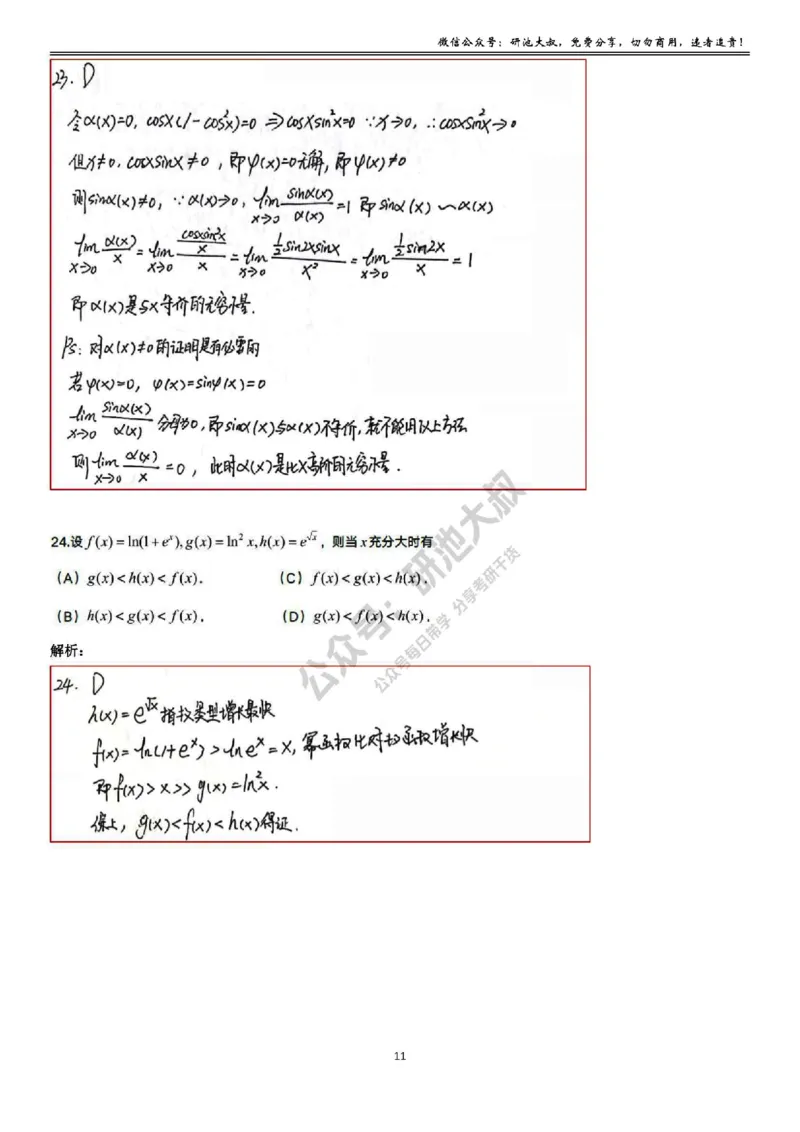 微信公众号：研池大叔，免费分享，切勿商用，违者追责！
23. D
令α(x)=0, cosx(1-cos²x)=0 ⇒cosxsin²x=0 ∵x→0, ∴cosxsin²x→0
但x≠0, cosxsinx≠0，即φ(x)=0无解，即φ(x)≠0
则sinα(x)≠0, ∵α(x)→0, lim_{x→0} sinα(x)/α(x) =1 即 sinα(x)～α(x)
lim_{x→0} α(x)/x = lim_{x→0} (cosxsin²x/x)/x = lim_{x→0} ½sin2xsinx/x² = lim_{x→0} ½sin2x/x = 1
即α(x)是与x等价的无穷小量.
Ps: 对α(x)≠0的证明是有必要的
若φ(x)=0, φ(x)=sinφ(x)=0
lim_{x→0} sinα(x)/α(x) 分母为0, 即sinα(x)与α(x)不等价, 就不能用以上方法
则 lim_{x→0} α(x)/x =0, 此时α(x)是比x高阶的无穷小量.
24.设 f(x)=ln(1+eˣ),g(x)=ln²x,h(x)=e^{√x}，则当x充分大时有
(A) g(x)<h(x)<f(x). (C) f(x)<g(x)<h(x).
(B) h(x)<g(x)<f(x). (D) g(x)<f(x)<h(x).
解析：
24. D
h(x)=e^{√x} 指数类型增长最快
f(x)=ln(1+eˣ)>lneˣ=x, 幂函数比对数函数增长快
即f(x)>x>>g(x)=ln²x.
综上, g(x)<f(x)<h(x)得证.
公众号：研池大叔
公众号每日带学 分享考研干货
11